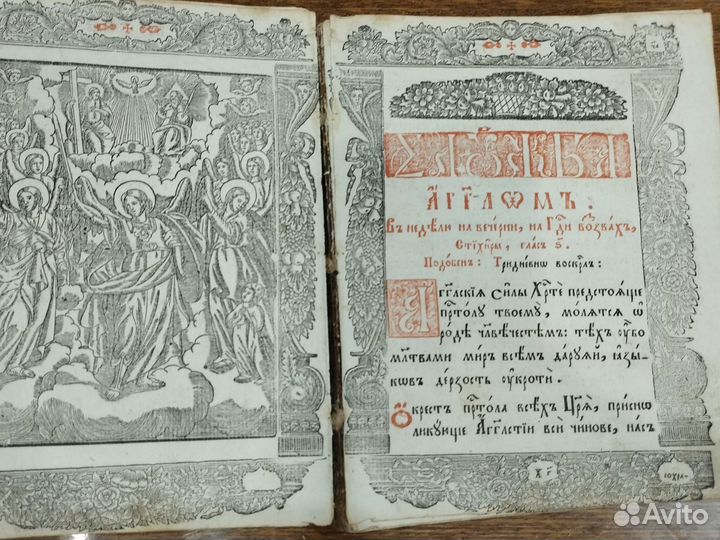 СЛꙊЖБА
А҆́гг҃лѡмъ:
Въ недѣ́ли на вече́рни, на Гдⷭ҇и воззва́хъ,
Стїхи̑ры, гла́съ
Подо́бенъ: Тридне́внѡ воскрⷭ҇лъ:
А҆́гг҃лскїѧ си̑лы Хрⷭ҇тѐ предстоѧ́щїе
прⷭ҇то́лꙋ твоемꙋ̀, мо́лѧтсѧ ѡ҆
ро́дѣ чл҃вѣ́честѣмъ: тѣ́хъ ᲂу҆́бѡ
мл҃твами ми́ръ всѣ̑мъ да́рꙋѧй, ꙗ҆зы́-
кѡвъ де́рзость ᲂу҆кротѝ.
Ѻ҆́крестъ прⷭ҇то́ла всѣ́хъ Цр҃ѧ̀, при́снѡ
ликꙋ́юще А҆́гг҃лстїи всѝ чи́нове, на́съ
Avito